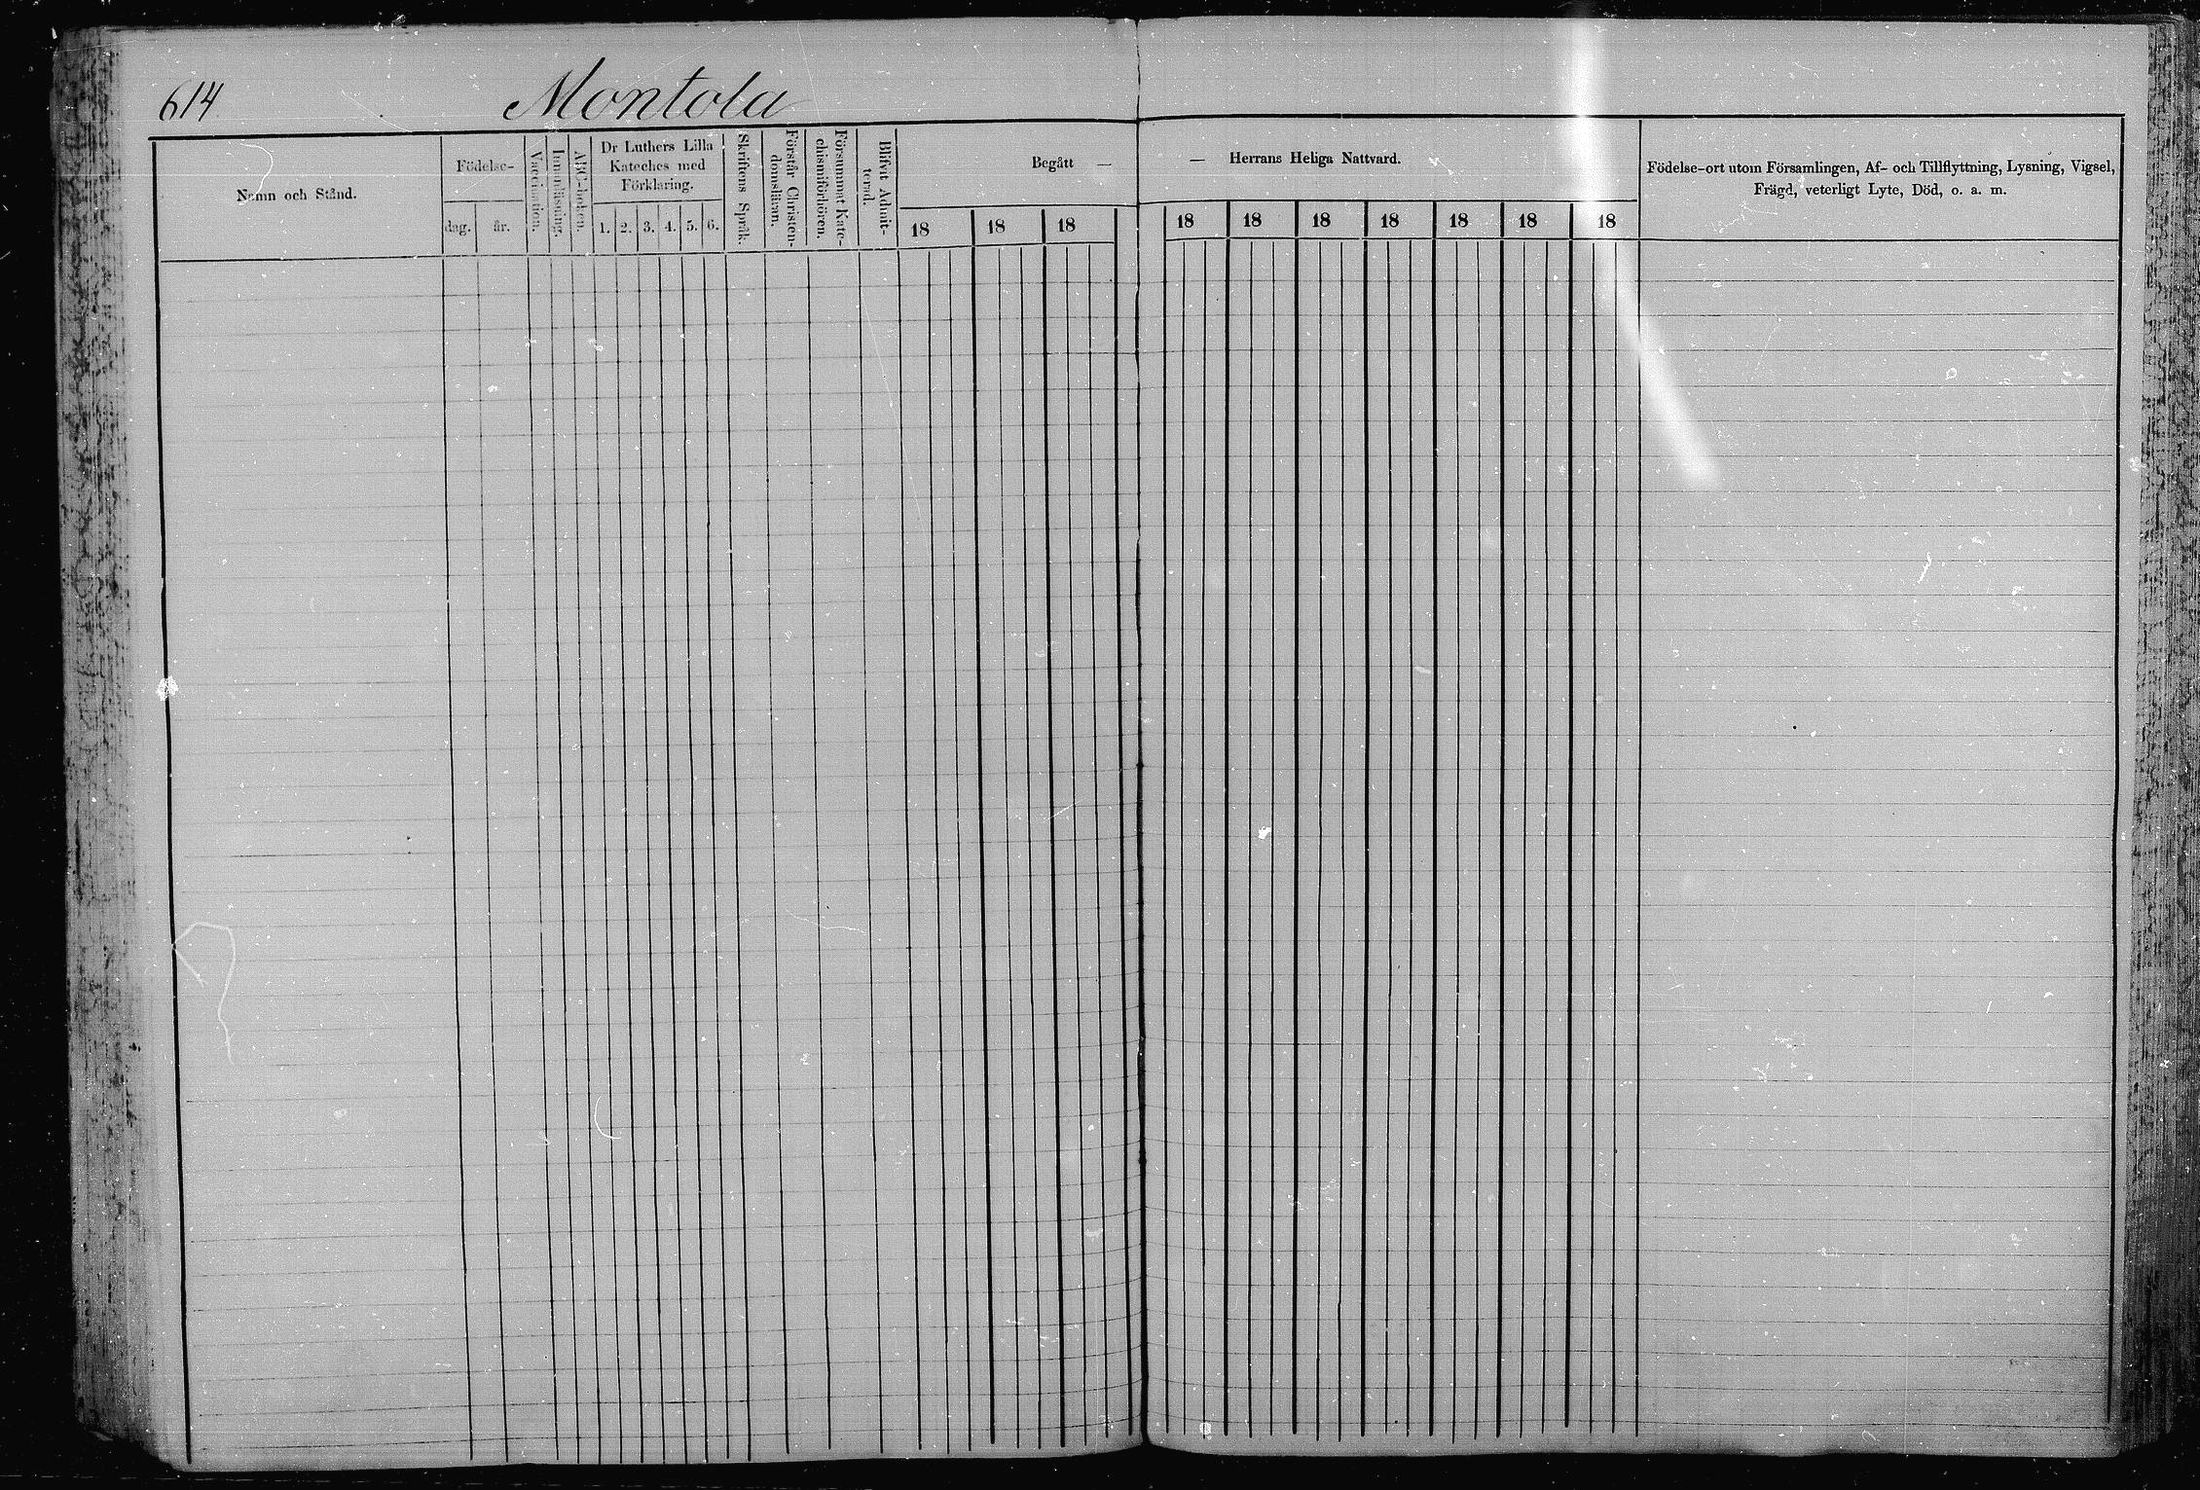 614 Montola
Namn och Stånd.
Födelse-
dag. år.
Vaccination.
Innanläsning.
ABC-boken.
Dr Luthers Lilla
Kateches med
Förklaring.
1. 2. 3. 4. 5. 6.
Skriftens Språk.
Förstår Christen-
domsläran.
Försummat Kate-
chismiförhören.
Blifvit Admit-
terad.
Begått —
18 18 18
— Herrans Heliga Nattvard.
18 18 18 18 18 18 18
Födelse-ort utom Församlingen, Af- och Tillflyttning, Lysning, Vigsel,
Frägd, veterligt Lyte, Död, o. a. m.